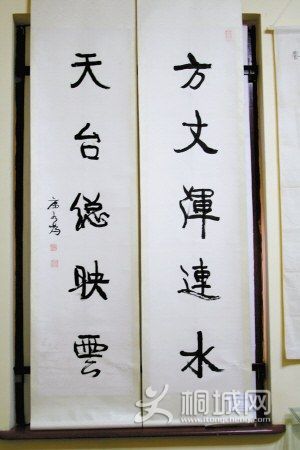 方丈渾連水
天台總映雲
康有為
桐城网
www.itongcheng.com